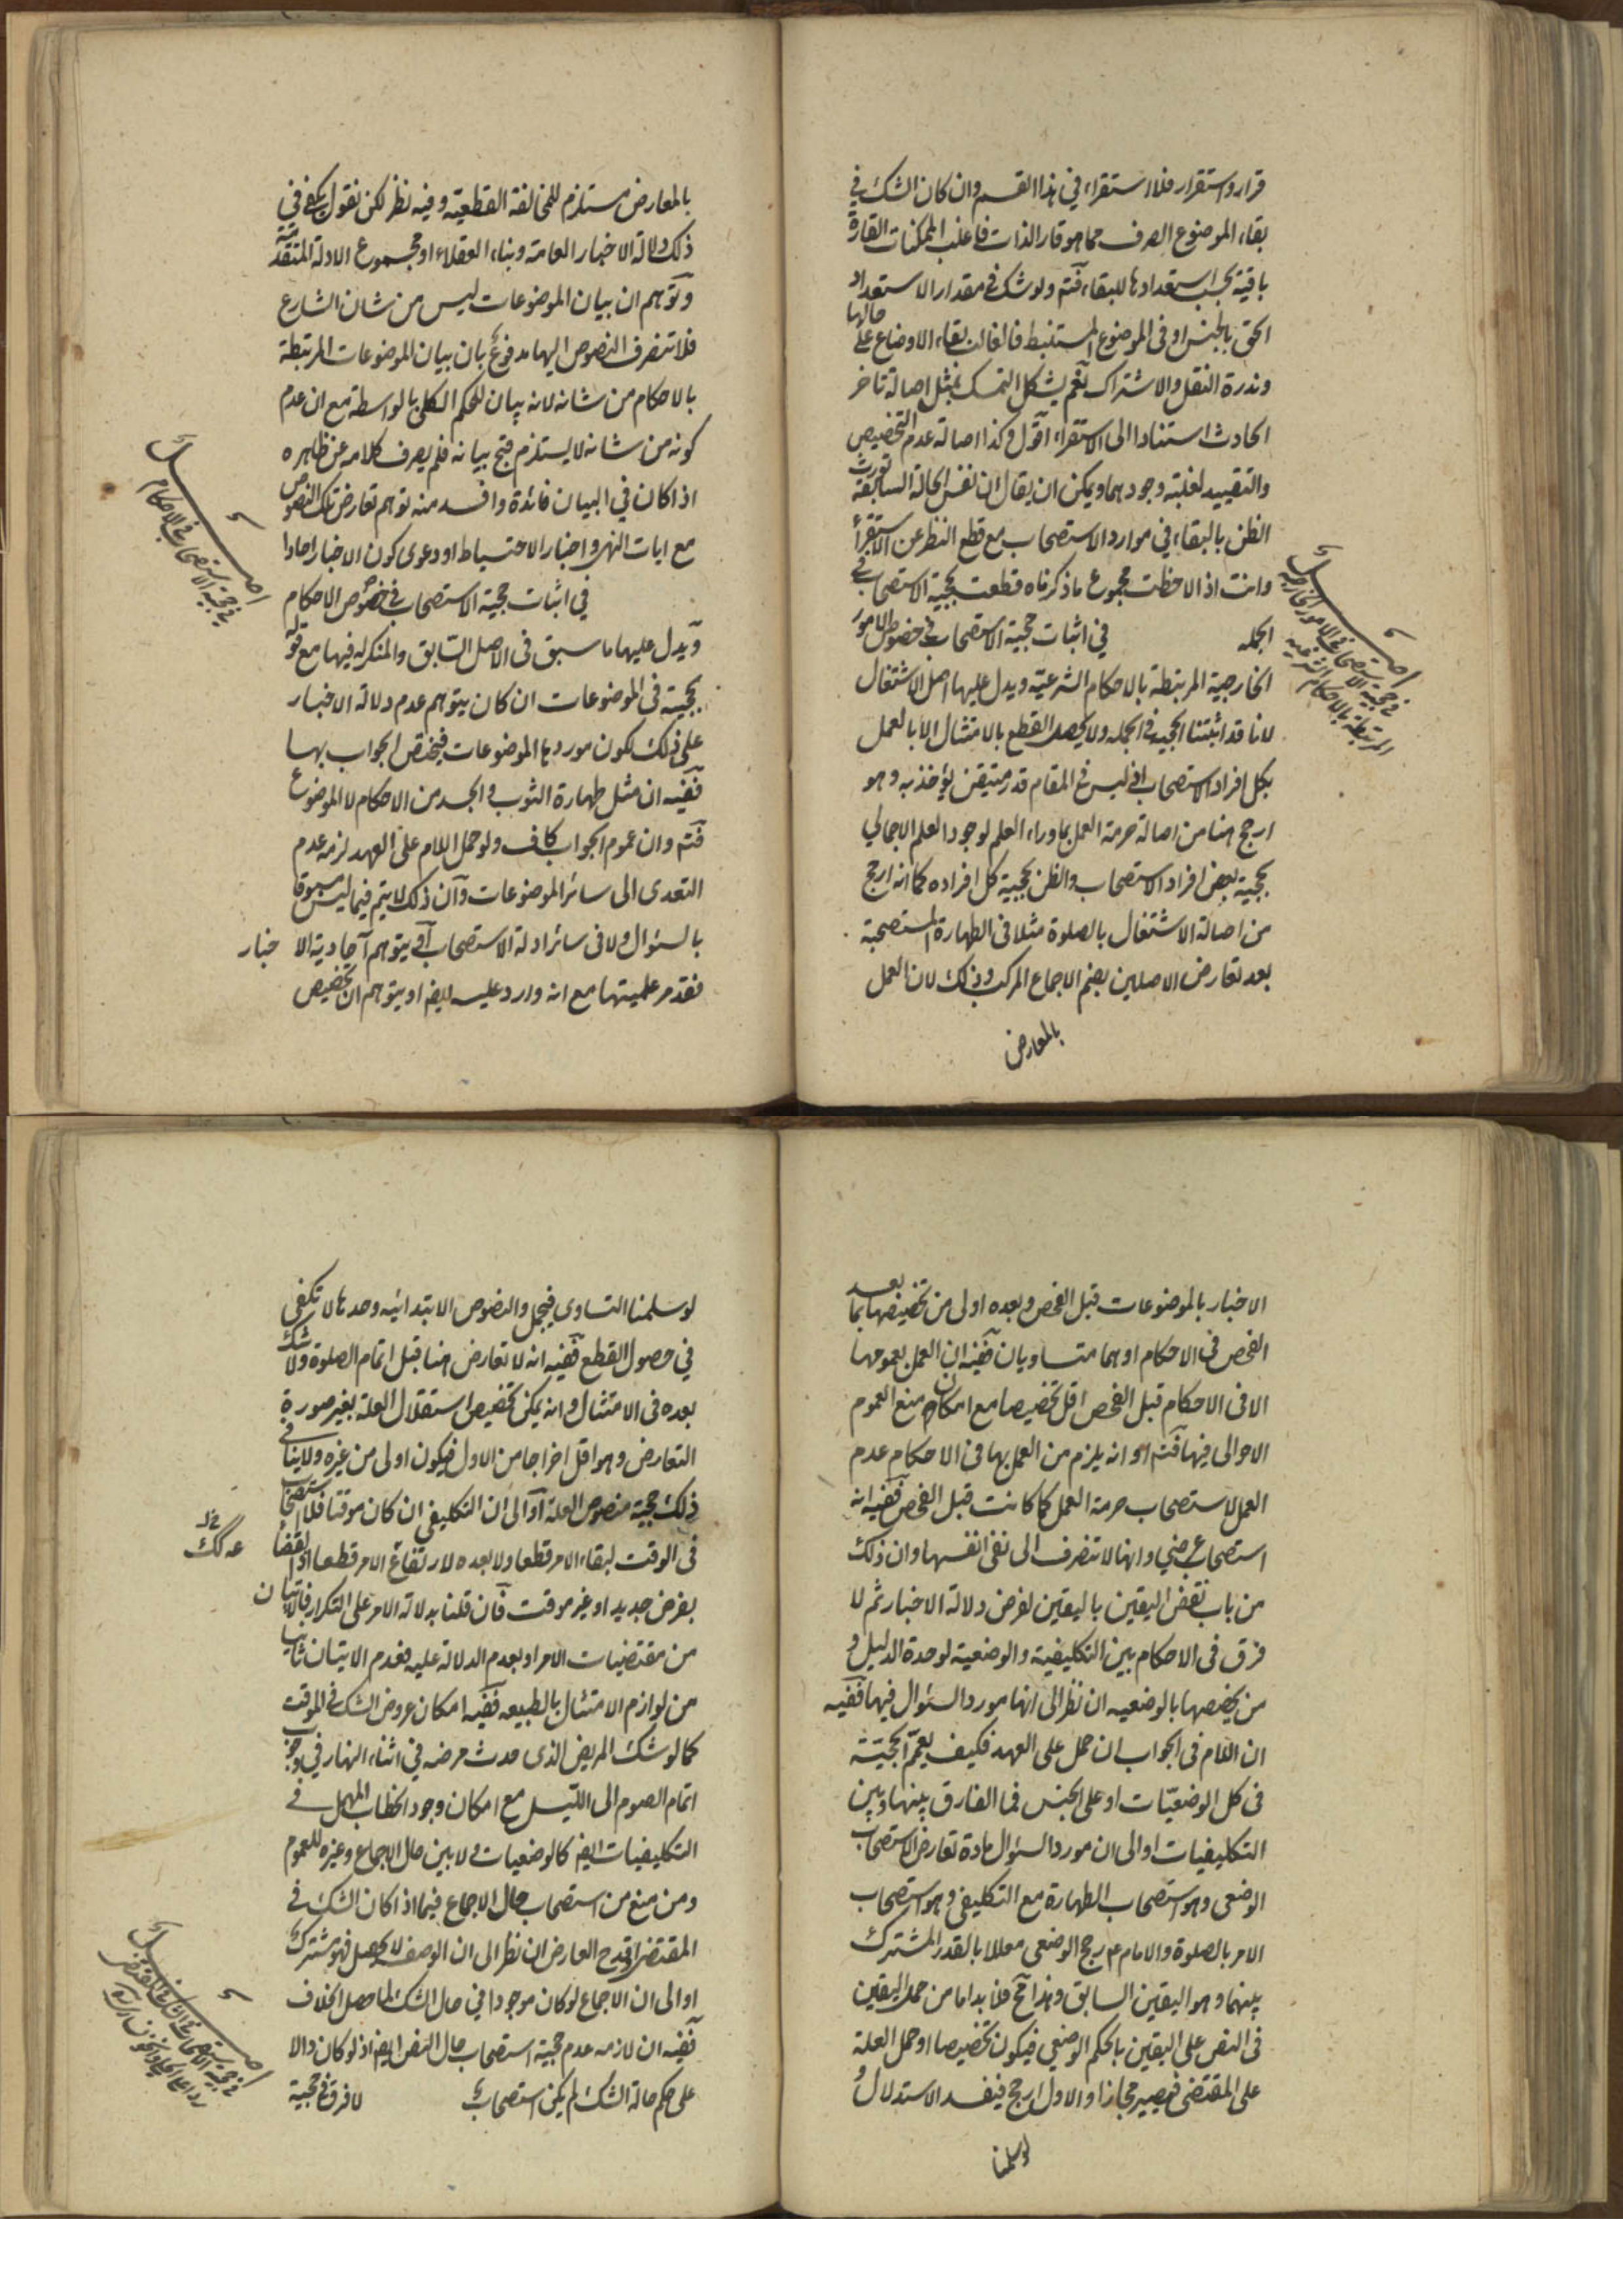 قرار واستقرار فلا استقراء في هذا القسم وان كان الشك في
بقاء الموضوع الصرف مما هو قار الذات فاغلب الممكنات القارة
باقية بحسب استعدادها للبقاء فتم ولو شك في مقدار الاستعداد
الحق بالجنس او في الموضوع المستنبط فالغالب بقاء الاوضاع على حالها
وندرة النقل والاشتراك نعم يشكل التمسك بمثل اصالة تاخر
الحادث استنادا الى الاستقراء اقول وكذا اصالة عدم التخصيص
والتقييد لغلبة وجودهما ويمكن ان يقال ان نفس الحالة السابقة تورث
الظن بالبقاء في موارد الاستصحاب مع قطع النظر عن الاستقراء
وانت اذا لاحظت مجموع ما ذكرناه قطعت بحجية الاستصحاب في
الجمله في اثبات حجية الاستصحاب في خصوص الامور
الخارجية المرتبطة بالاحكام الشرعية ويدل عليها اصل الاشتغال
لانا قد اثبتنا الحجية في الجمله ولا يحصل القطع بالامتثال الا بالعمل
بكل افراد الاستصحاب اذ ليس في المقام قدر متيقن يؤخذ به وهو
ارجح هنا من اصالة حرمة العمل بما وراء العلم لوجود العلم الاجمالي
بحجية بعض افراد الاستصحاب والظن بحجية كل افراده كما انه ارجح
من اصالة الاشتغال بالصلوة مثلا في الطهارة المستصحبة
بعد تعارض الاصلين بضم الاجماع المركب وذلك لان العمل
بالمعارض
اصل
في حجية الاستصحاب في الامور الخارجية
المرتبطة بالاحكام الشرعيه
بالمعارض مستلزم للمخالفة القطعيه وفيه نظر لكن نقول يكفى في
ذلك دلالة الاخبار العامة وبناء العقلاء او مجموع الادلة المتقدمة
وتوهم ان بيان الموضوعات ليس من شان الشارع
فلا تنصرف النصوص اليها مدفوع بان بيان الموضوعات المرتبطة
بالاحكام من شانه لانه بيان للحكم الكلي بالواسطة مع ان عدم
كونه من شانه لا يستلزم قبح بيانه فلم يصرف كلامه عن ظاهره
اذا كان في البيان فائدة وافسد منه توهم تعارض تلك النصوص
مع ايات النهي واخبار الاحتياط او دعوى كون الاخبار احادا
في اثبات حجية الاستصحاب في خصوص الاحكام
ويدل عليها ما سبق في الاصل السابق والمنكر له فيها مع قوله
بحجيته في الموضوعات ان كان يتوهم عدم دلالة الاخبار
على ذلك لكون موردها الموضوعات فيختص الجواب بها
ففيه ان مثل طهارة الثوب والجسد من الاحكام لا الموضوع
فتم وان عموم الجواب كاف ولو حمل اللام على العهد لزمه عدم
التعدى الى سائر الموضوعات وان ذلك لا يتم فيما ليس مسبوقا
بالسئوال ولا في سائر ادلة الاستصحاب او يتوهم احادية الاخبار
فقد مر علميتها مع انه وارد عليه ايضا او يتوهم ان تخصيص
اصل
في حجية الاستصحاب في الاحكام
الاخبار بالموضوعات قبل الفحص وبعده اولى من تخصيصها بما بعد
الفحص في الاحكام او هما متساويان ففيه ان العمل بعمومها
الا في الاحكام قبل الفحص اقل تخصيصا مع امكان منع العموم
الاحوالى فيها فتم او انه يلزم من العمل بها في الاحكام عدم
العمل لاستصحاب حرمة العمل كما كانت قبل الفحص ففيه انه
استصحاب عرضي وانها لا تنصرف الى نفي انفسها وان ذلك
من باب نقض اليقين باليقين لفرض دلالة الاخبار ثم لا
فرق في الاحكام بين التكليفية والوضعية لوحدة الدليل و
من يخصها بالوضعيه ان نظر الى انها مورد السئوال فيها ففيه
ان اللام في الجواب ان حمل على العهد فكيف يعم الحجية
في كل الوضعيات او على الجنس فما الفارق بينها وبين
التكليفيات او الى ان مورد السئوال مادة تعارض الاستصحاب
الوضعى وهو استصحاب الطهارة مع التكليفى وهو استصحاب
الامر بالصلوة والامام ع رجح الوضعى معللا بالقدر المشترك
بينهما وهو اليقين السابق وهذا قبيح فلا بد اما من حمل اليقين
في النص على اليقين بالحكم الوضعي فيكون تخصيصا او حمل العلة
على المقتضى فيصير مجازا والاول ارجح فيفسد الاستدلال و
لو سلمنا
لو سلمنا التساوي فيجمل والنصوص الابتدائيه وحدها لا تكفى
في حصول القطع ففيه انه لا تعارض هنا قبل اتمام الصلوة ولا شك
بعده في الامتثال وانه يمكن تخصيص استقلال العلة بغير صورة
التعارض وهو اقل اخراجا من الاول فيكون اولى من غيره ولا ينافي
ذلك حجية منصوص العلة او الى ان التكليفي ان كان موقتا فلا استصحاب
في الوقت لبقاء الامر قطعا ولا بعده لارتفاع الامر قطعا اذ القضاء
بفرض جديد او غير موقت فان قلنا بدلالة الامر على التكرار فالاتيان
من مقتضيات الامر او بعدم الدلالة عليه فعدم الاتيان ثانيا
من لوازم الامتثال بالطبيعه ففيه امكان عروض الشك في الموقت
كما لو شك المريض الذى حدث مرضه في اثناء النهار في وجوب
اتمام الصوم الى الليل مع امكان وجود الخطاب المهمل في
التكليفيات ايضا كالوضعيات ولا بين حال الاجماع وغيره للعموم
ومن منع من استصحاب حال الاجماع فيما اذا كان الشك في
المقتضى او قدح العارض ان نظر الى ان الوصف لا يحصل فهو مشترك
او الى ان الاجماع لو كان موجودا في حال الشك لما حصل الخلاف
ففيه ان لازمه عدم حجية استصحاب حال النص ايضا اذ لو كان دالا
على حكم حالة الشك لم يكن استصحاب لا فرق في حجية
اصل